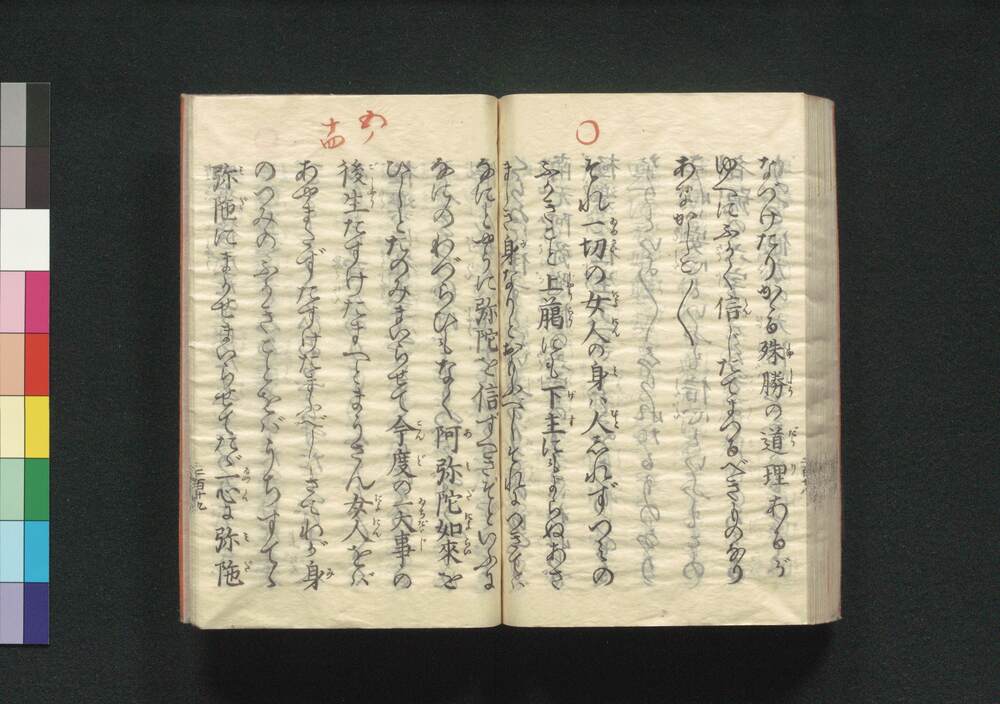 〇
なづけたりかゝる殊勝の道理あるが
ゆへにふかく信じたてまつるべきものなり
あなかしこ〳〵
それ一切の女人の身は人しれずつみの
ふかきこと上臈にも下主にもよらぬあさ
ましき身なりとおもふべしそれにつきては
五ノ
十四
なにとやうに弥陀を信ずべきぞといふに
なにのわづらひもなく阿弥陀如來を
ひしとたのみまいらせて今度の一大事の
後生たすけたまへとまうさん女人をば
あやまたずたすけたまふべしさてわが身
のつみのふかきことをばうちすてゝ
弥陁にまかせまいらせてたゞ一心に弥陁
二百廿九